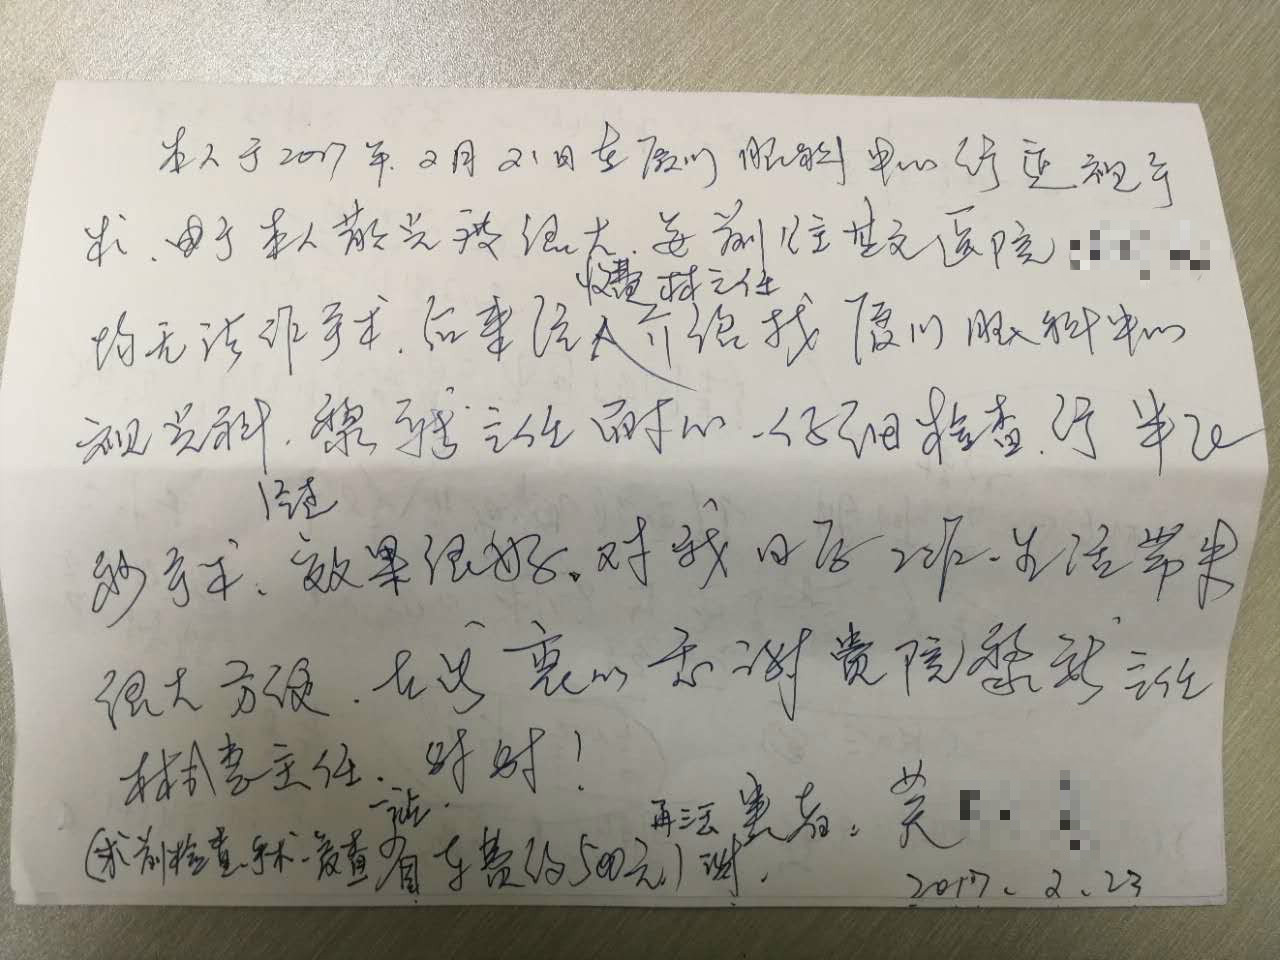 本人于2017年.2月21日在厦门眼科中心行近视手
术.由于本人散光破很大.在前往其它医院
收费林主任
均无法作手术.后来经人介绍找厦门眼科中心
视光科.黎主任耐心.仔细检查.行半飞
经过
秒手术.效果很好.对我日后工作.生活带来
很大方便.在此衷心感谢贵院黎主任
林主任.谢谢!
一站
再三 患者:黄
(术前检查.手术.复查省车费约500元)谢.
2017.2.23